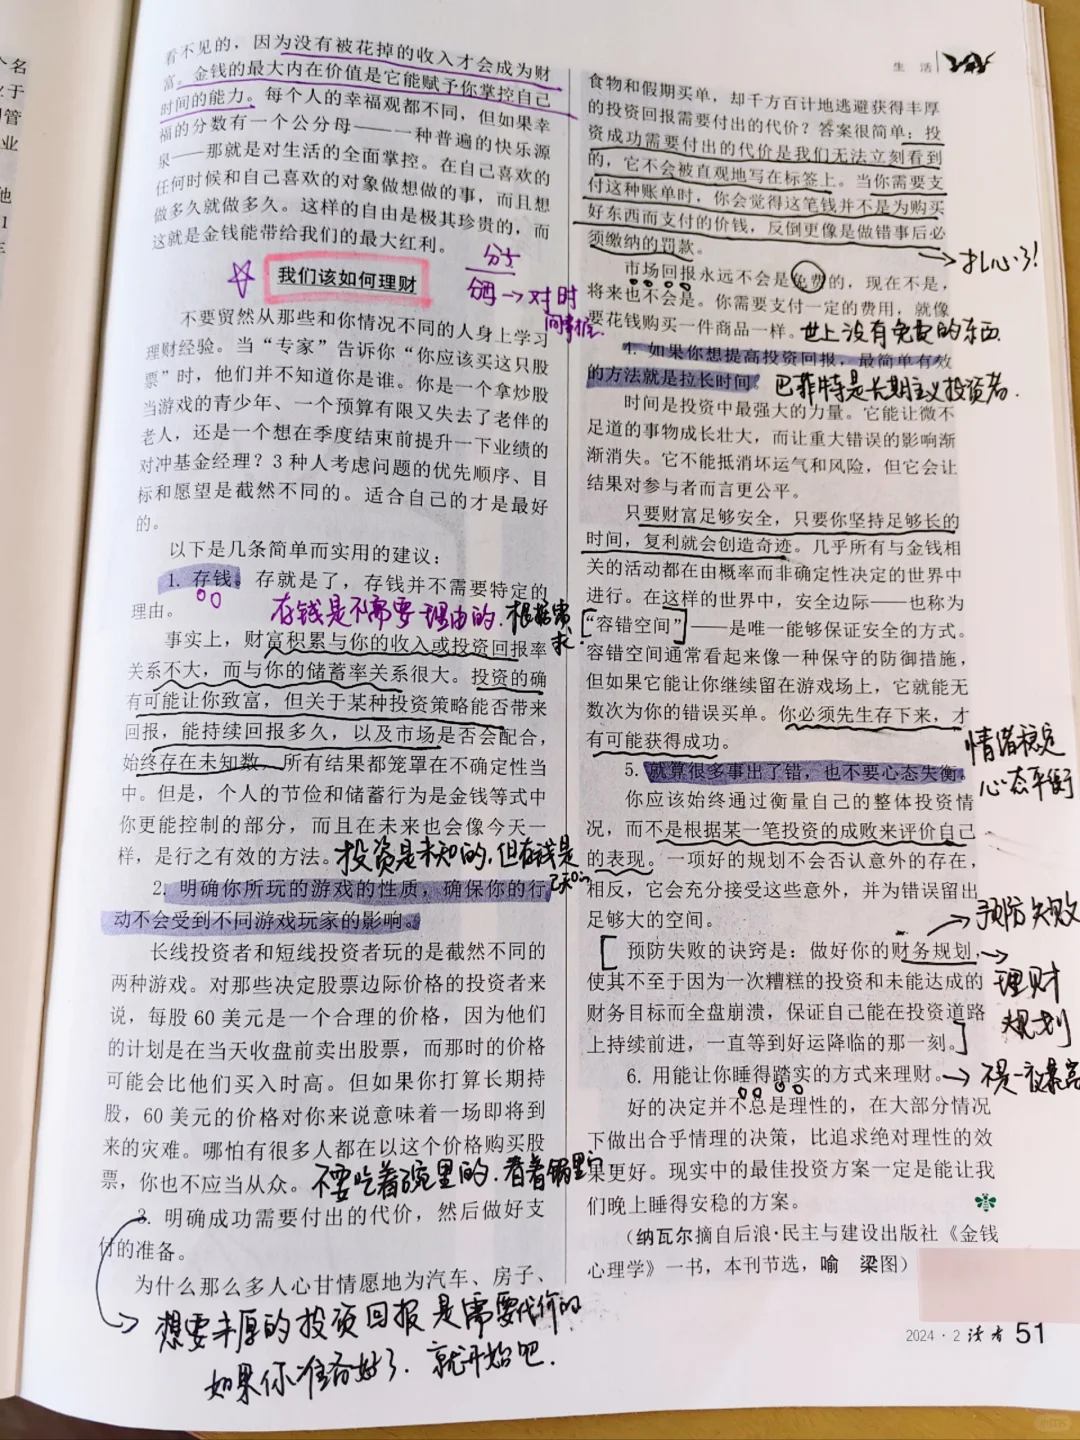 看不见的，因为没有被花掉的收入才会成为财
富。金钱的最大内在价值是它能赋予你掌控自己
时间的能力。每个人的幸福观都不同，但如果幸
福的分数有一个公分母——一种普遍的快乐源
泉——那就是对生活的全面掌控。在自己喜欢的
任何时候和自己喜欢的对象做想做的事，而且想
做多久就做多久。这样的自由是极其珍贵的，而
这就是金钱能带给我们的最大红利。
分子
分母→对时
间掌控.
我们该如何理财
不要贸然从那些和你情况不同的人身上学习
理财经验。当“专家”告诉你“你应该买这只股
票”时，他们并不知道你是谁。你是一个拿炒股
当游戏的青少年、一个预算有限又失去了老伴的
老人，还是一个想在季度结束前提升一下业绩的
对冲基金经理？3 种人考虑问题的优先顺序、目
标和愿望是截然不同的。适合自己的才是最好
的。
以下是几条简单而实用的建议：
1. 存钱。存就是了，存钱并不需要特定的
理由。
存钱是不需要理由的.根据需
求.
事实上，财富积累与你的收入或投资回报率
关系不大，而与你的储蓄率关系很大。投资的确
有可能让你致富，但关于某种投资策略能否带来
回报，能持续回报多久，以及市场是否会配合，
始终存在未知数。所有结果都笼罩在不确定性当
中。但是，个人的节俭和储蓄行为是金钱等式中
你更能控制的部分，而且在未来也会像今天一
样，是行之有效的方法。
投资是未知的.但存钱是
已知的
2. 明确你所玩的游戏的性质，确保你的行
动不会受到不同游戏玩家的影响。
长线投资者和短线投资者玩的是截然不同的
两种游戏。对那些决定股票边际价格的投资者来
说，每股 60 美元是一个合理的价格，因为他们
的计划是在当天收盘前卖出股票，而那时的价格
可能会比他们买入时高。但如果你打算长期持
股，60 美元的价格对你来说意味着一场即将到
来的灾难。哪怕有很多人都在以这个价格购买股
票，你也不应当从众。
不要吃着碗里的.看着锅里
3. 明确成功需要付出的代价，然后做好支
付的准备。
为什么那么多人心甘情愿地为汽车、房子、
想要丰厚的投资回报是需要代价的
如果你准备好了.就开始吧.
生 活
食物和假期买单，却千方百计地逃避获得丰厚
的投资回报需要付出的代价？答案很简单：投
资成功需要付出的代价是我们无法立刻看到
的，它不会被直观地写在标签上。当你需要支
付这种账单时，你会觉得这笔钱并不是为购买
好东西而支付的价钱，反倒更像是做错事后必
须缴纳的罚款。
→扎心了!
市场回报永远不会是免费的，现在不是，
将来也不会是。你需要支付一定的费用，就像
要花钱购买一件商品一样。
世上没有免费的东西
4. 如果你想提高投资回报，最简单有效
的方法就是拉长时间。
巴菲特是长期主义投资者.
时间是投资中最强大的力量。它能让微不
足道的事物成长壮大，而让重大错误的影响渐
渐消失。它不能抵消坏运气和风险，但它会让
结果对参与者而言更公平。
只要财富足够安全，只要你坚持足够长的
时间，复利就会创造奇迹。几乎所有与金钱相
关的活动都在由概率而非确定性决定的世界中
进行。在这样的世界中，安全边际——也称为
“容错空间”——是唯一能够保证安全的方式。
容错空间通常看起来像一种保守的防御措施，
但如果它能让你继续留在游戏场上，它就能无
数次为你的错误买单。你必须先生存下来，才
有可能获得成功。
情绪稳定
心态平衡
5. 就算很多事出了错，也不要心态失衡。
你应该始终通过衡量自己的整体投资情
况，而不是根据某一笔投资的成败来评价自己
的表现。一项好的规划不会否认意外的存在，
相反，它会充分接受这些意外，并为错误留出
足够大的空间。
→预防失败
预防失败的诀窍是：做好你的财务规划，
→理财
规划
使其不至于因为一次糟糕的投资和未能达成的
财务目标而全盘崩溃，保证自己能在投资道路
上持续前进，一直等到好运降临的那一刻。
6. 用能让你睡得踏实的方式来理财。
→不是一夜暴富
好的决定并不总是理性的，在大部分情况
下做出合乎情理的决策，比追求绝对理性的效
果更好。现实中的最佳投资方案一定是能让我
们晚上睡得安稳的方案。
（纳瓦尔摘自后浪·民主与建设出版社《金钱
心理学》一书，本刊节选，喻 梁图）
2024·2 读者 51